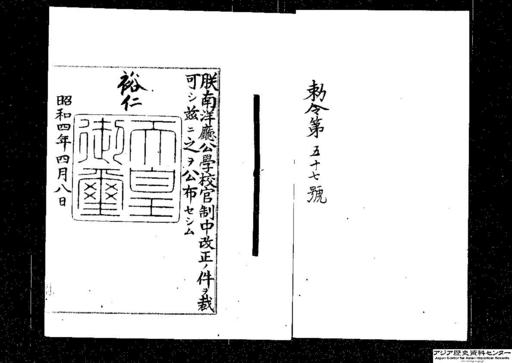 勅令第五十七號
朕南洋廳公學校官制中改正ノ件ヲ裁
可シ茲ニ之ヲ公布セシム
裕仁
天皇
御璽
昭和四年四月八日
アジア歴史資料センター
Japan Center for Asian Historical Records